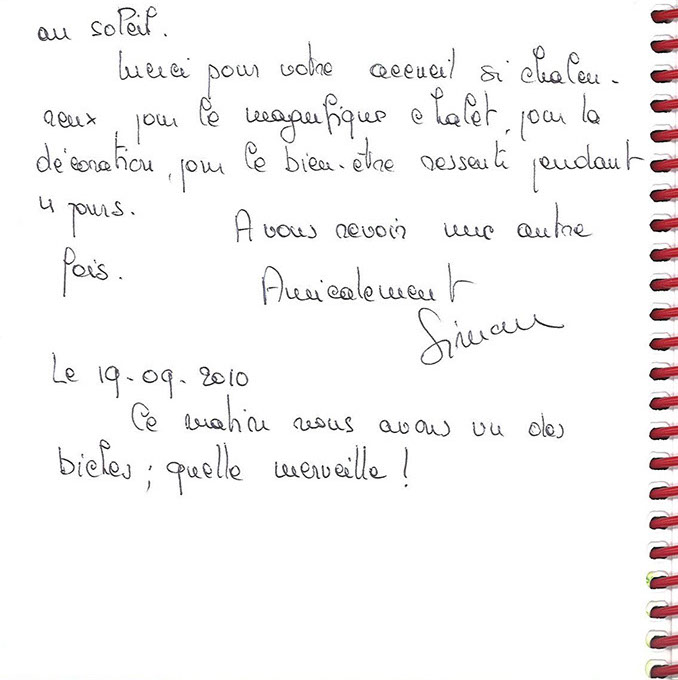 au soleil.
Merci pour votre accueil si chaleu-
reux, pour le magnifique chalet, pour la
décoration, pour le bien-être ressenti pendant
4 jours. A vous revoir une autre
fois. Amicalement
Le 19-09-2010
Ce matin nous avons vu des
biches ; quelle merveille !